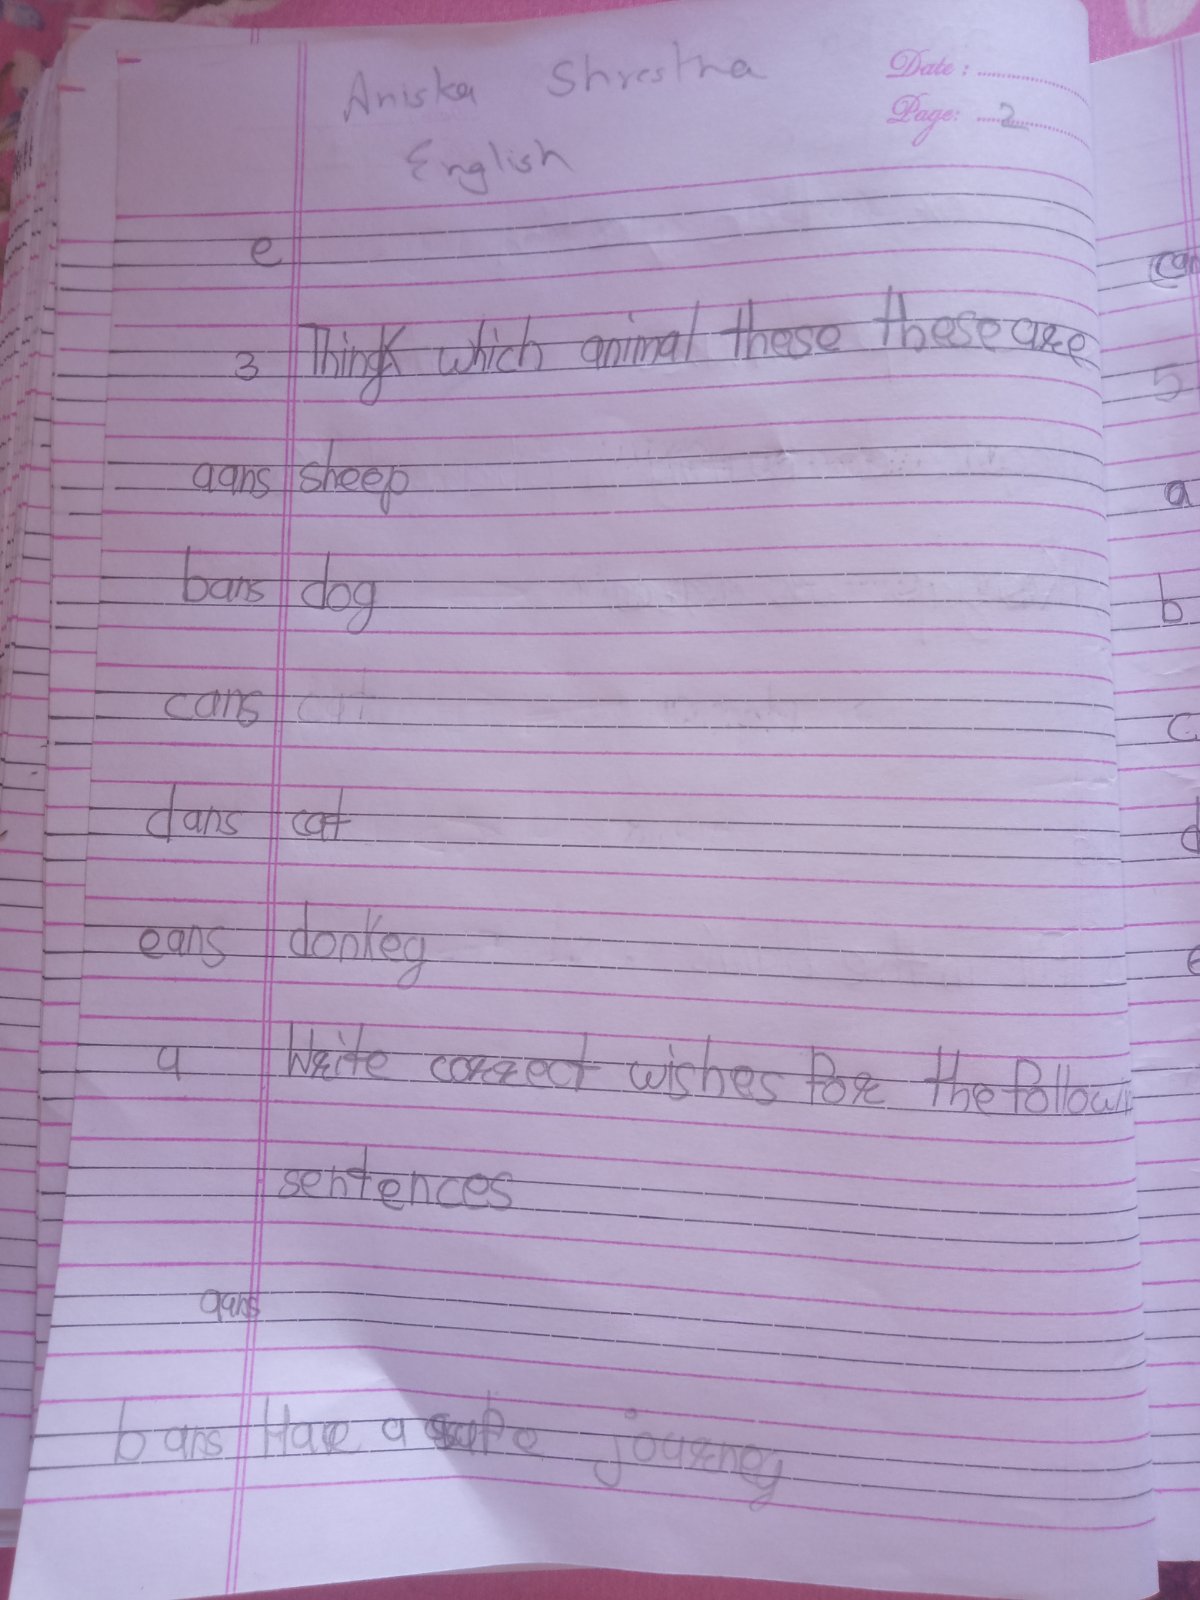 Aniska Shrestha
Date:
Page: 2
English
e
3 Thingk which animal these these are
aans sheep
bans dog
cans cat
dans cat
eans donkey
Write correct wishes for the follow
sentences
aans
bans Hae a safe journey
5
a
b
c
d
e